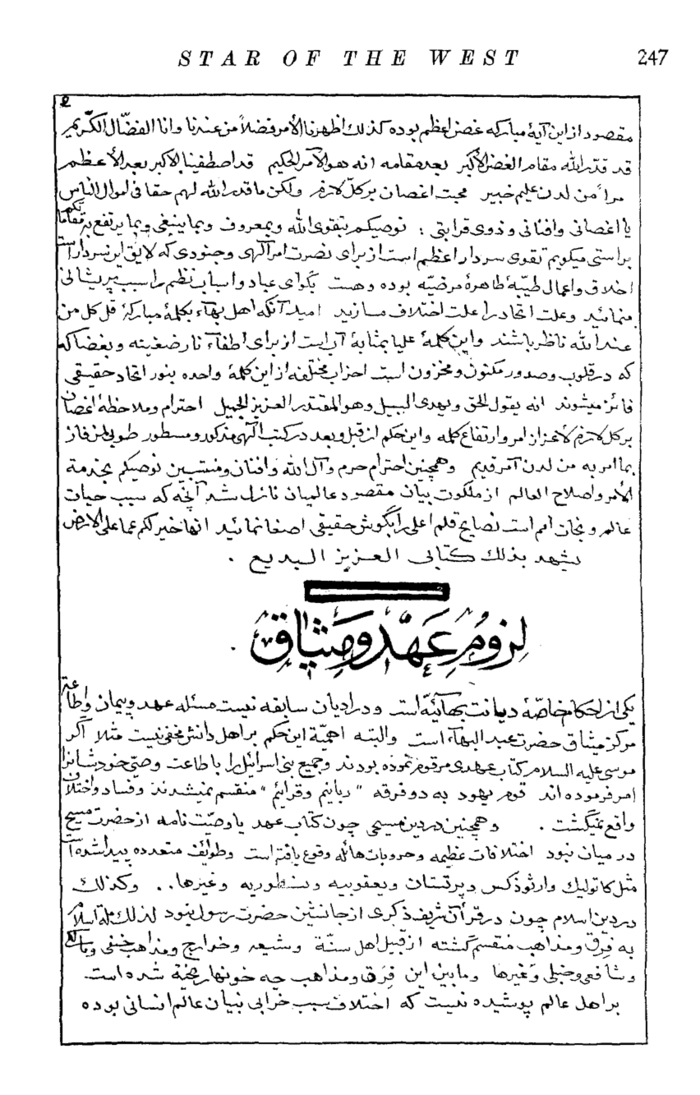 STAR OF THE WEST 247
۲
مقصود از این آیهٔ مبارکه غصن اعظم بوده کذلک اظهرنا الأمر فضلاً من عندنا و انا الفضّال الکریم
قد قدّر الله مقام الغصن الأکبر بعد مقامه انه هو الآمر الحکیم قد اصطفینا الأکبر بعد الأعظم
مراً من لدن علیم خبیر محبت اغصان بر کلّ لازم ولکن ما قدر الله لهم حقا فی اموال الناس
یا اغصانی و افنانی و ذوی قرابتی : نوصیکم بتقوی الله و بمعروف و بما ینبغی و بما یرتفع به مقاماتکم
براستی میگویم تقوی سردار اعظم است از برای نصرت امر الهی و جنودی که لایق این سردار است
اخلاق و اعمال طیّبهٔ طاهرهٔ مرضیّه بوده و هست بگو ای عباد اسباب نظم را سبب پریشانی
منمائید و علت اتحاد را علت اختلاف مسازید امید آنکه اهل بهآء بکلمهٔ مبارکهٔ قل کل من
عند الله ناظر باشند و این کلمهٔ علیا بمثابهٔ آبست از برای اطفآء نار ضغینه و بغضا که
که در قلوب و صدور مکنون و مخزون است احزاب مختلفه از این کلمهٔ واحده بنور اتحاد حقیقی
فائز میشوند انه یقول الحق و یهدی السبیل و هو المقتدر العزیز الجمیل احترام و ملاحظهٔ اغصان
بر کل لازم لأعزاز امر و ارتفاع کلمه و این حکم از قبل و بعد در کتب الهی مذکور و مسطور طوبی لمن فاز
بما امر به من لدن آمر قدیم و همچنین احترام حرم و آل الله و افنان و منتسبین نوصیکم بخدمة
الأمر و اصلاح العالم از ملکوت بیان مقصود عالمیان نازل شد آنچه که سبب حیات
عالم و نجات امم است نصایح قلم اعلی را بگوش حقیقی اصغا نمائید انها خیر لکم عما علی الارض
یشهد بذلک کتابی العزیز البدیع .
لزوم عهد و میثاق .
یکی از احکام خاصّهٔ دیانت بهائیّه است و در ادیان سابقه نیست مسئله عهد و پیمان و اطاعت
مرکز میثاق حضرت عبد البهآء است والبته اهمیّة این حکم بر اهل دانش مخفی نیست مثلا اگر
موسی علیه السلام کتاب عهدی مرقوم نموده بودند و جمیع بنی اسرائیل را باطاعت وصیّ خود شان
امر فرموده اند قوم یهود به دو فرقه " ربانیم و قرایم " منقسم نمیشدند و فساد و اختلاف
واقع نمیگشت . و همچنین در دین مسیحی چون کتاب عهد یا وصیّت نامه از حضرت مسیح
در میان نبود اختلافات عظیمه و حروبات هائله وقوع یافته است و طوائف متعدده پیدا شده است
مثل کاتولیک و ارثوذکس و پرتستان و یعقوبیه و نسطوریه و غیرها .. و کذلک
در دین اسلام چون در قرآن شریف ذکری از جانشین حضرت رسول نبود لذلک ملة اسلام
به فِرَق و مذاهب منقسم گشته از قبیل اهل سنّة و شیعه و خوارج و مذاهب حنفی و مالکی
و شافعی و حنبلی و غیرها و مابین این فِرَق و مذاهب چه خونها ریخته شده است
بر اهل عالم پوشیده نیست که اختلاف سبب خرابی بنیان عالم انسانی بوده